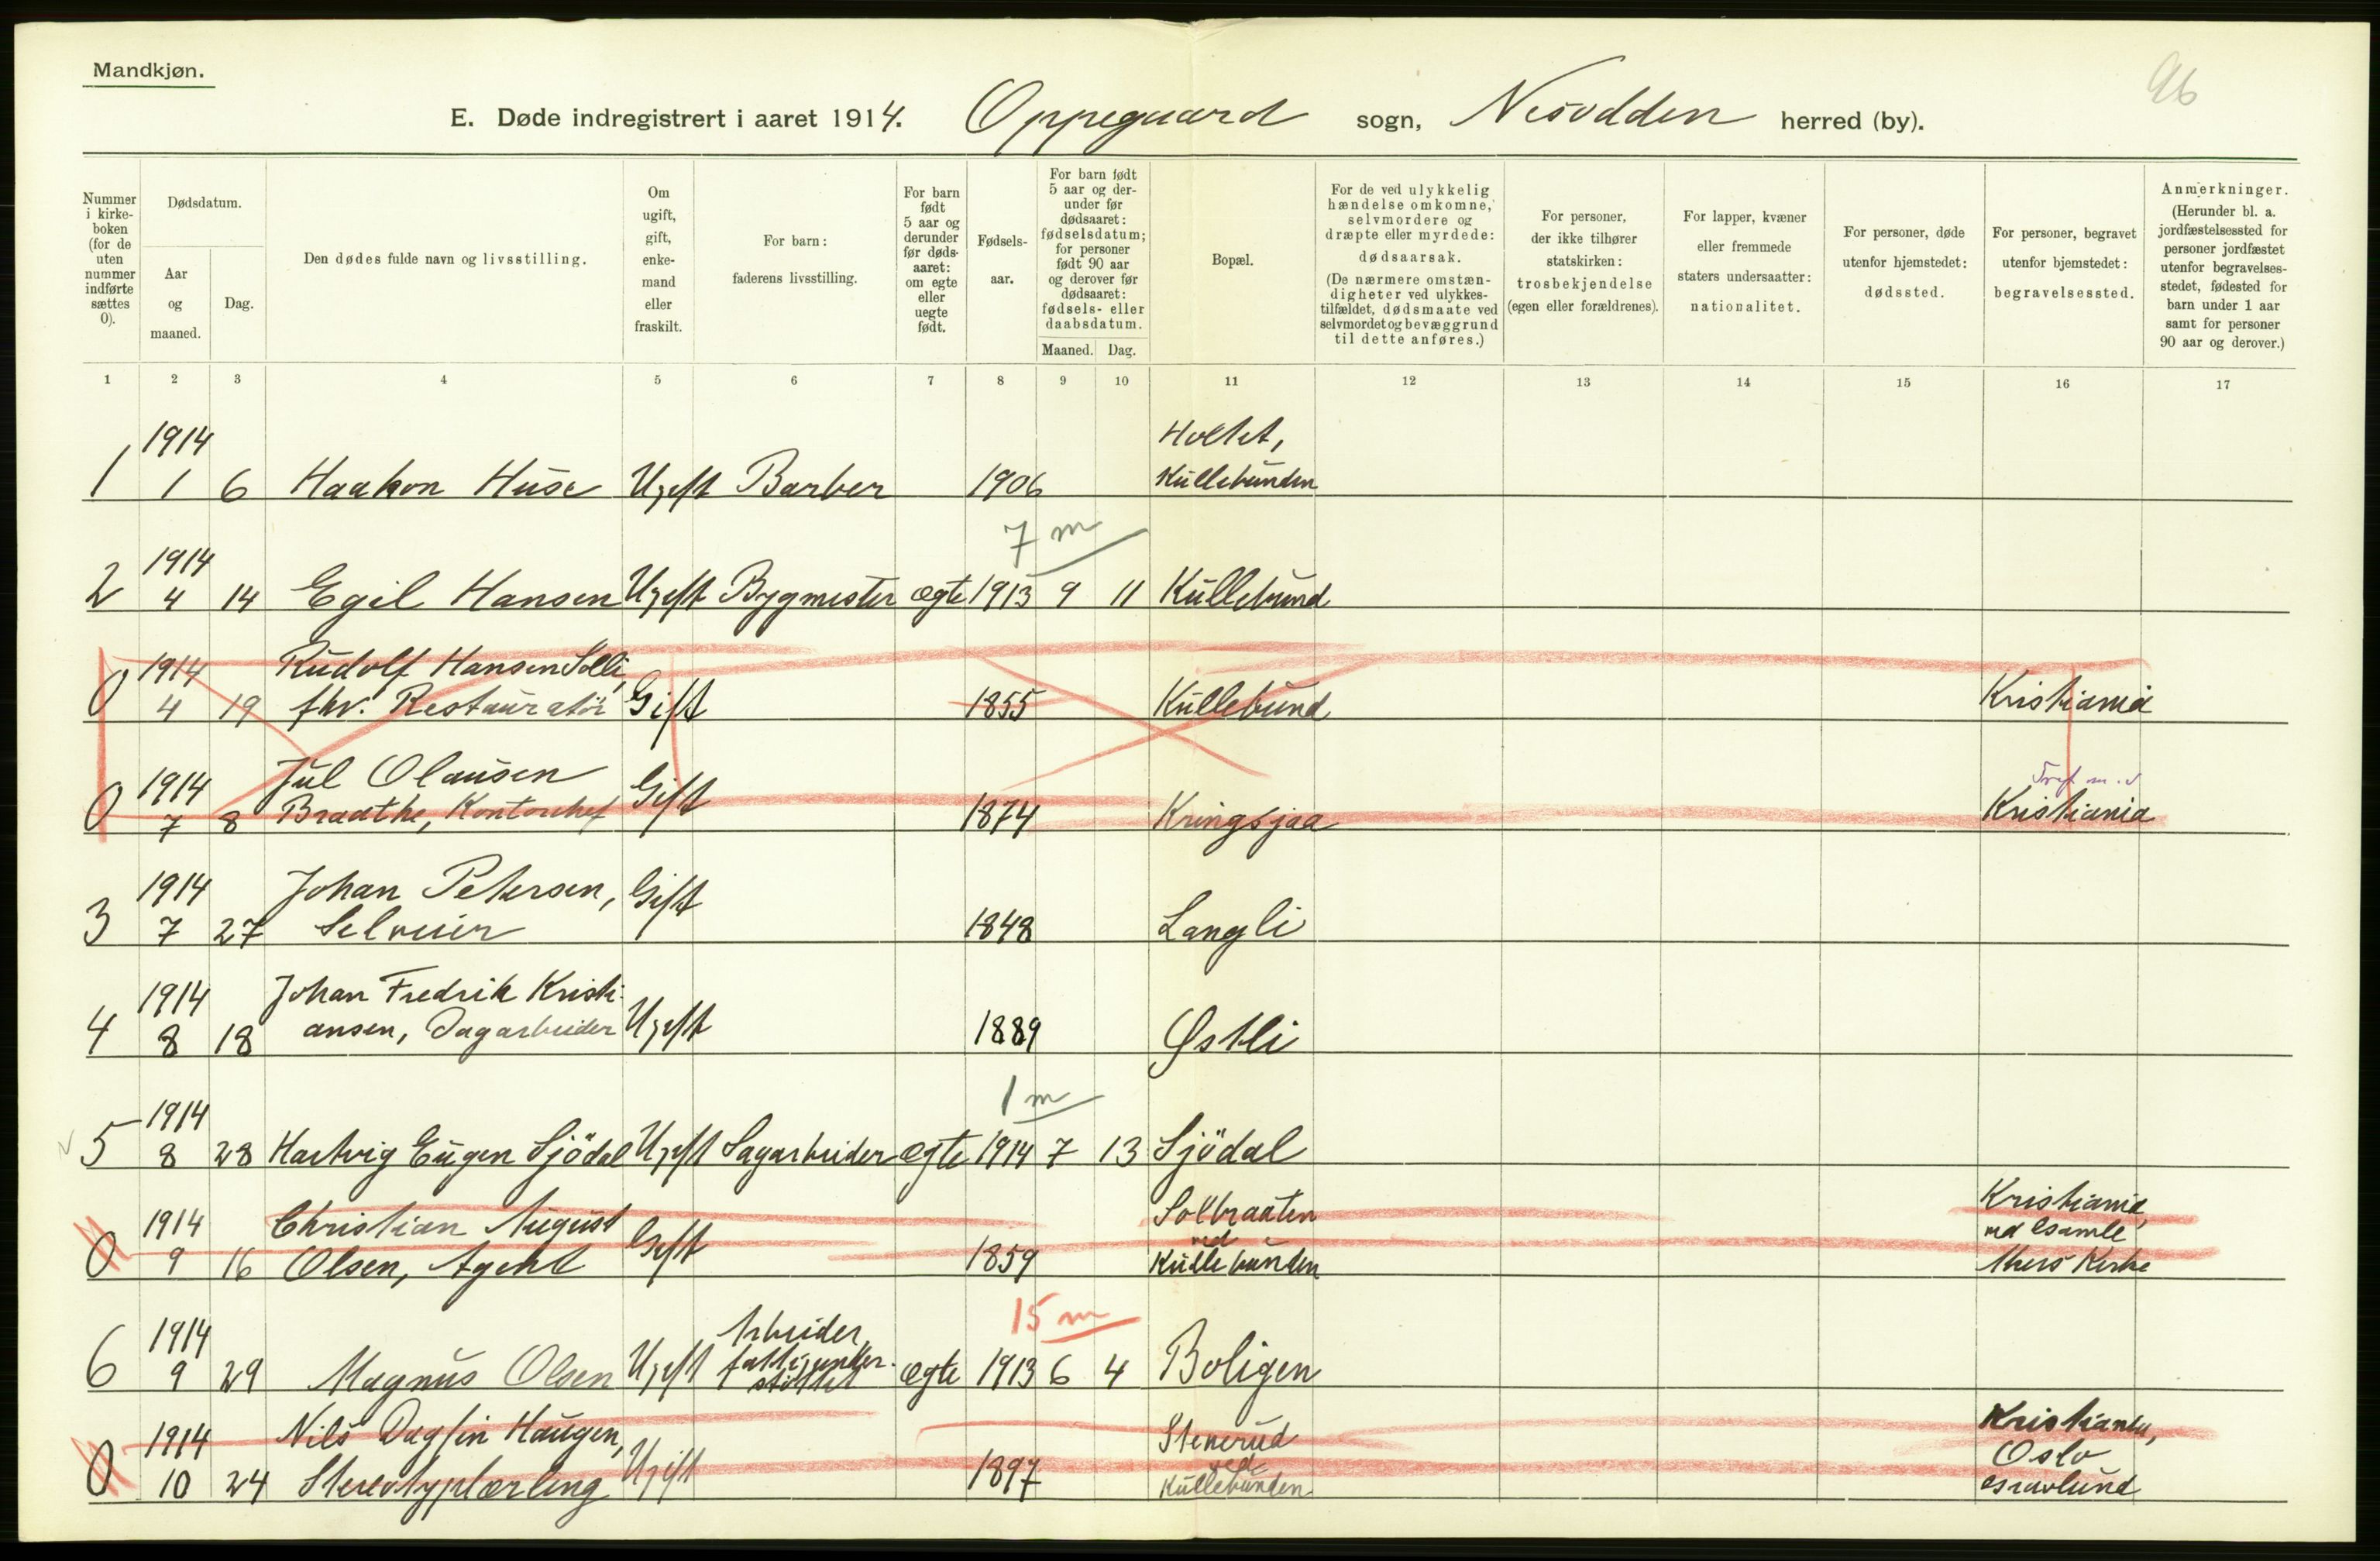 Mandkjøn.
96
E. Døde indregistrert i aaret 1914. Oppegaard sogn, Nesodden herred (by).
Nummer i kirke- boken (for de uten nummer indførte sættes 0).
Dødsdatum.
Aar og maaned.
Dag.
Den dødes fulde navn og livsstilling.
Om ugift, gift, enke- mand eller fraskilt.
For barn: faderens livsstilling.
For barn født 5 aar og derunder før døds- aaret: om egte eller uegte født.
Fødsels- aar.
For barn født 5 aar og der- under før dødsaaret: fødselsdatum; for personer født 90 aar og derover før dødsaaret: fødsels- eller daabsdatum.
Maaned. Dag.
Bopæl.
For de ved ulykkelig hændelse omkomne, selvmordere og dræpte eller myrdede: dødsaarsak. (De nærmere omstæn- digheter ved ulykkes- tilfældet, dødsmaate ved selvmordet og bevæggrund til dette anføres.)
For personer, der ikke tilhører statskirken: trosbekjendelse (egen eller forældrenes).
For lapper, kvæner eller fremmede staters undersaatter: nationalitet.
For personer, døde utenfor hjemstedet: dødssted.
For personer, begravet utenfor hjemstedet: begravelsessted.
Anmerkninger. (Herunder bl. a. jordfæstelsessted for personer jordfæstet utenfor begravelses- stedet, fødested for barn under 1 aar samt for personer 90 aar og derover.)
1 2 3 4 5 6 7 8 9 10 11 12 13 14 15 16 17
1914 Holtet,
1 1 6 Haakon Huse Ugift Barber 1906 Kullebunden
7 m
1914
2 4 14 Egil Hansen Ugift Bygmester ægte 1913 9 11 Kullebund
1914 Rudolf Hansen Solli,
0 4 19 fhv. Restauratør Gift 1855 Kullebund Kristiania
1914 Jul Olausen Gift
0 7 8 Braathe, Kontorchef 1874 Kringsjaa Kristiania
1914 Johan Petersen, Gift
3 7 27 Selveier 1848 Langli
1914 Johan Fredrik Kristi-
4 8 18 ansen, Dagarbeider Ugift 1889 Østli
1 m
1914
5 8 28 Hartvig Eugen Sjödal Ugift Sagarbeider ægte 1914 7 13 Sjödal
1914 Christian August Gift Solbraaten ved Kristiania,
0 9 16 Olsen, Agent 1859 Kullebunden ved Gamle Akers Kirke
15 m
1914 Arbeider,
6 9 29 Magnus Olsen Ugift fattigunder- støttet ægte 1913 6 4 Boligen
1914 Nils Dagfin Haugen, Stenerud ved Kristiania,
0 10 24 Stereotyplærling Ugift 1897 Kullebunden Oslo Gravlund